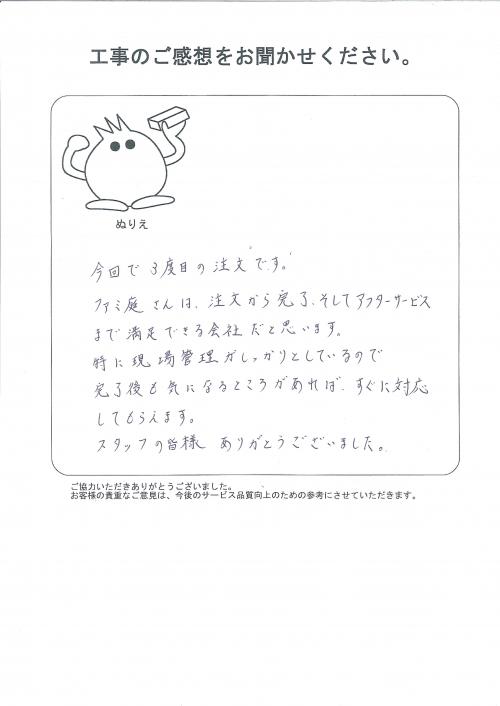 工事のご感想をお聞かせください。
ぬりえ
今回で3度目の注文です。
ファミ庭さんは、注文から完了、そしてアフターサービス
まで満足できる会社だと思います。
特に現場管理がしっかりとしているので
完了後も気になるところがあれば、すぐに対応
してもらえます。
スタッフの皆様 ありがとうございました。
ご協力いただきありがとうございました。
お客様の貴重なご意見は、今後のサービス品質向上のための参考にさせていただきます。